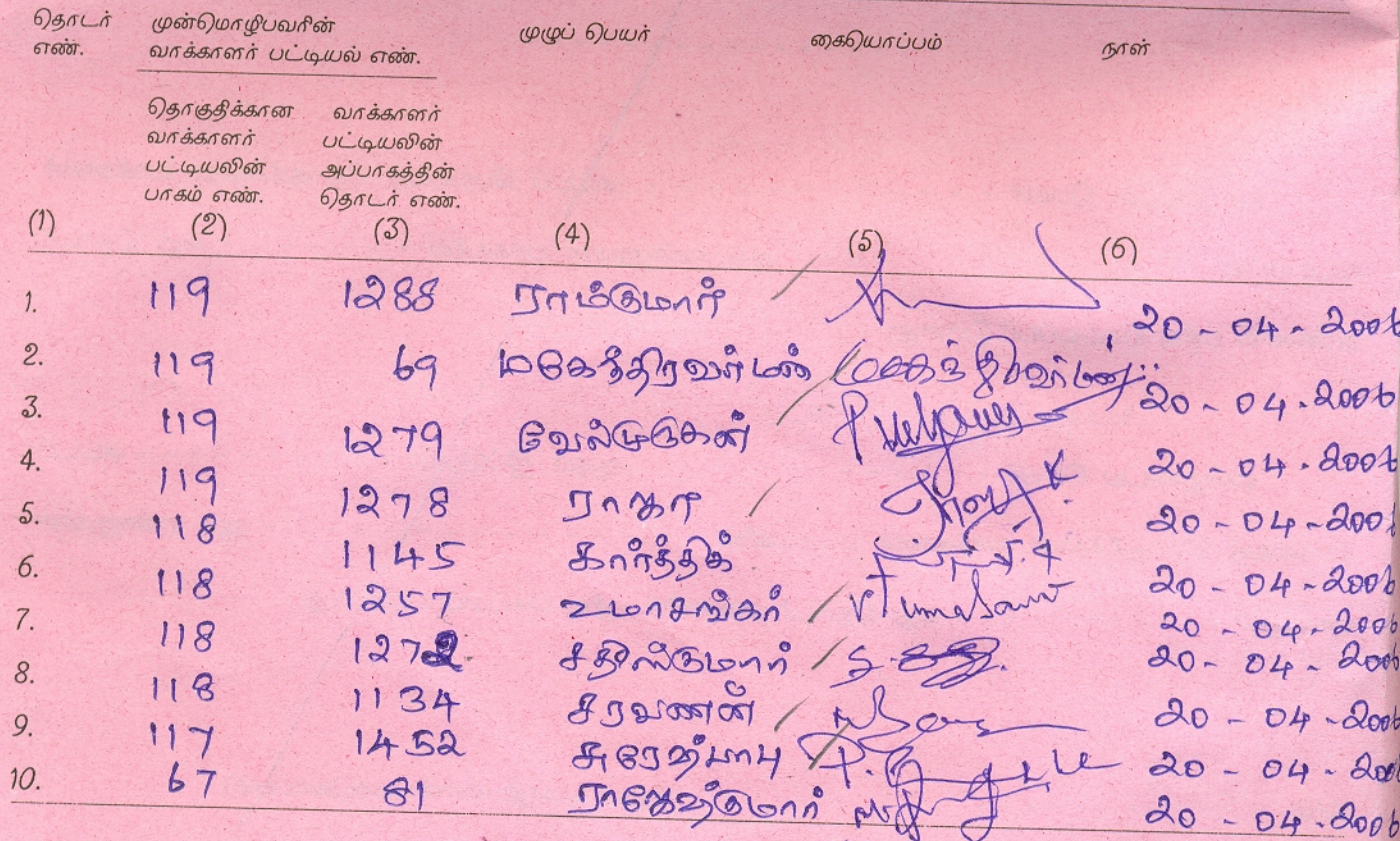 தொடர் முன்மொழிபவரின் முழுப் பெயர் கையொப்பம் நாள்
எண். வாக்காளர் பட்டியல் எண்.
தொகுதிக்கான வாக்காளர்
வாக்காளர் பட்டியலின்
பட்டியலின் அப்பாகத்தின்
பாகம் எண். தொடர் எண்.
(1) (2) (3) (4) (5) (6)
1. 119 1288 ராம்குமார் 20 - 04 - 2006
2. 119 69 மகேந்திரவர்மன் மகேந்திரவர்மன் 20 - 04 - 2006
3. 119 1279 வேல்முருகன் 20 - 04 - 2006
4. 119 1278 ராஜா 20 - 04 - 2006
5. 118 1145 கார்த்திக் 20 - 04 - 2006
6. 118 1257 உமாசங்கர் 20 - 04 - 2006
7. 118 1272 சதீஸ்குமார் 20 - 04 - 2006
8. 118 1134 சரவணன் 20 - 04 - 2006
9. 117 1452 சுரேஷ்பாபு 20 - 04 - 2006
10. 67 81 ராஜேஷ்குமார் 20 - 04 - 2006